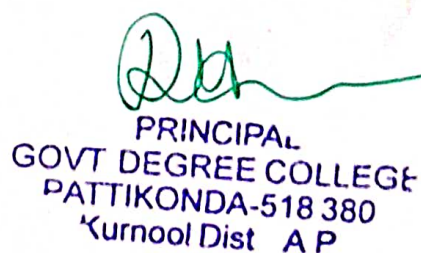 PRINCIPAL
GOVT DEGREE COLLEGE
PATTIKONDA-518 380
Kurnool Dist A P